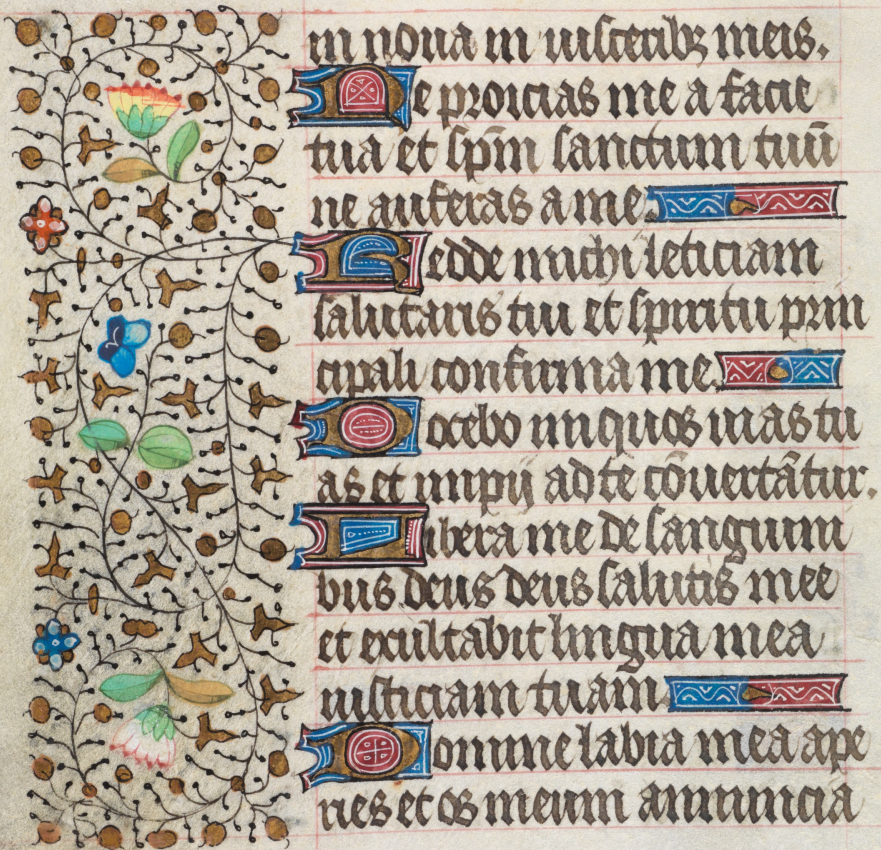 in noua in uisceribꝫ meis.
Ne proicias me a facie
tua et sp̄m sanctum tuū
ne auferas a me
Redde michi leticiam
salutaris tui et spiritu prin
cipali confirma me
Docebo iniquos uias tu
as et impij ad te cōuertātur.
Libera me de sanguini
bus deus deus salutis mee
et exultabit lingua mea
iusticiam tuam
Domine labia mea ape
ries et os meum annuncia